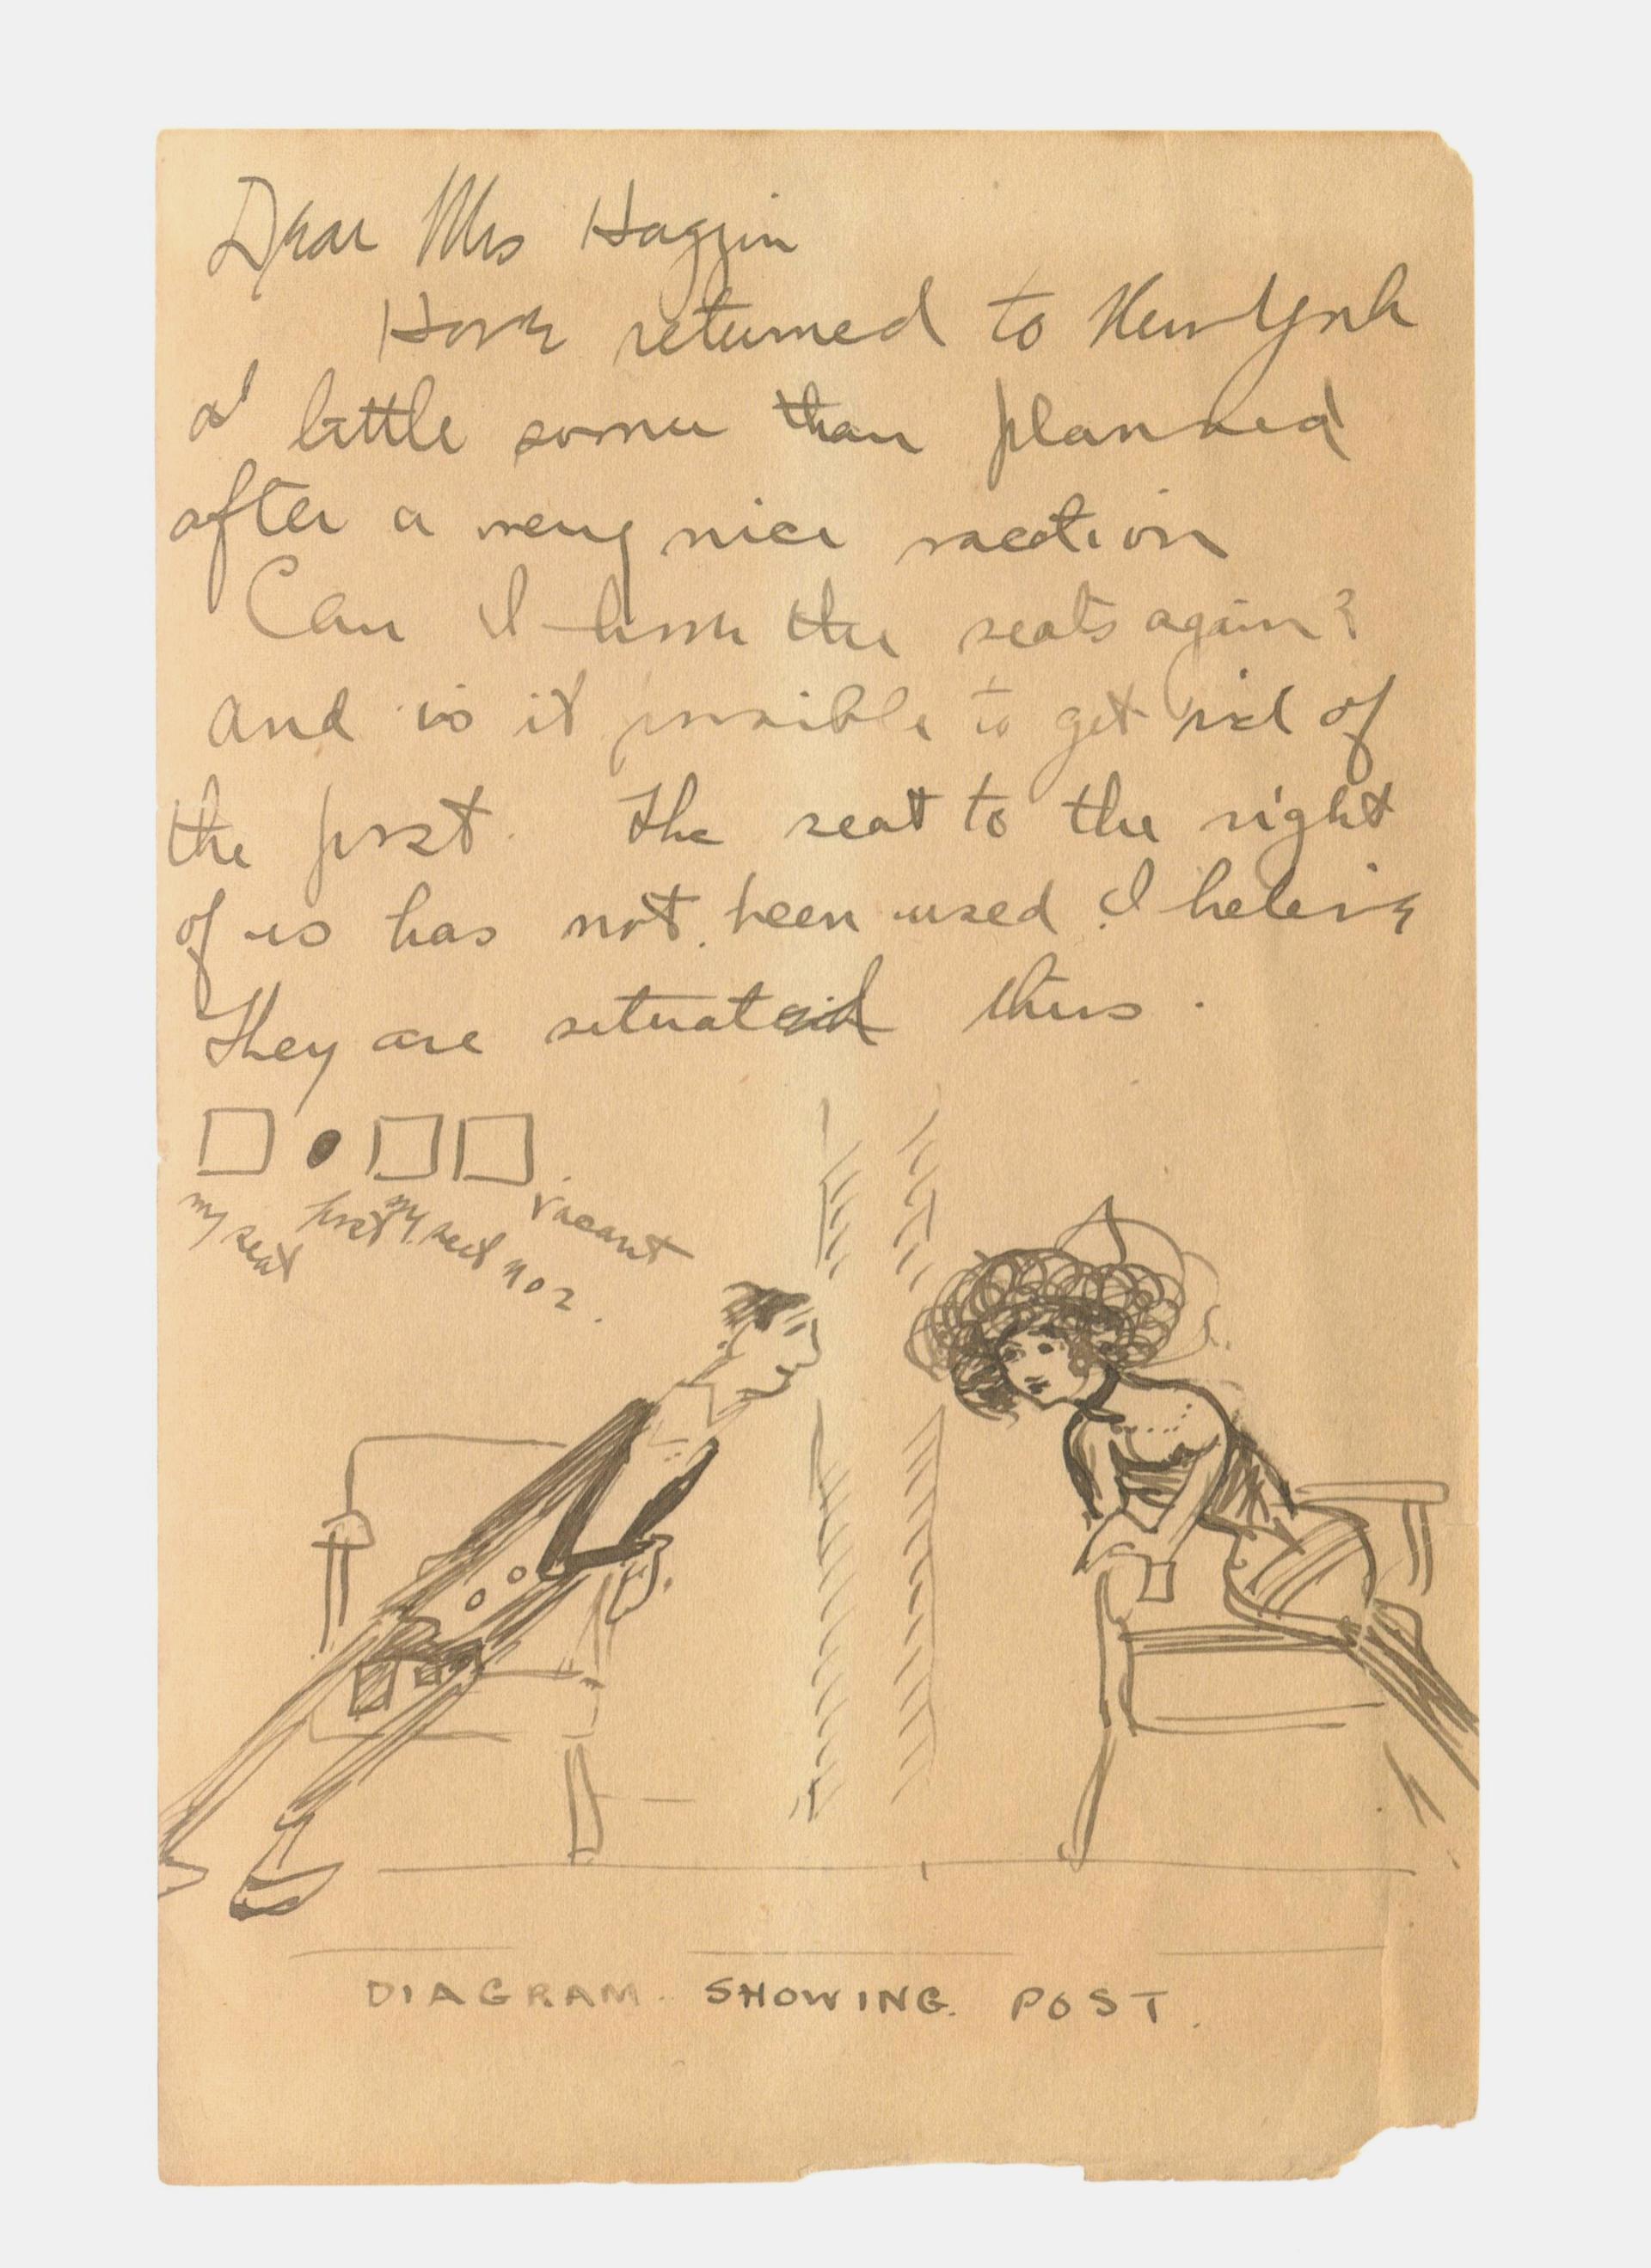 Dear Mrs Haggin
Have returned to New York
a little sooner than planned
after a very nice vacation
Can I have the seats again?
and is it possible to get rid of
the post. The seat to the right
of us has not been used I beleive
They are situated thus.
my seat post my seat no 2. vacant
DIAGRAM. SHOWING. POST.